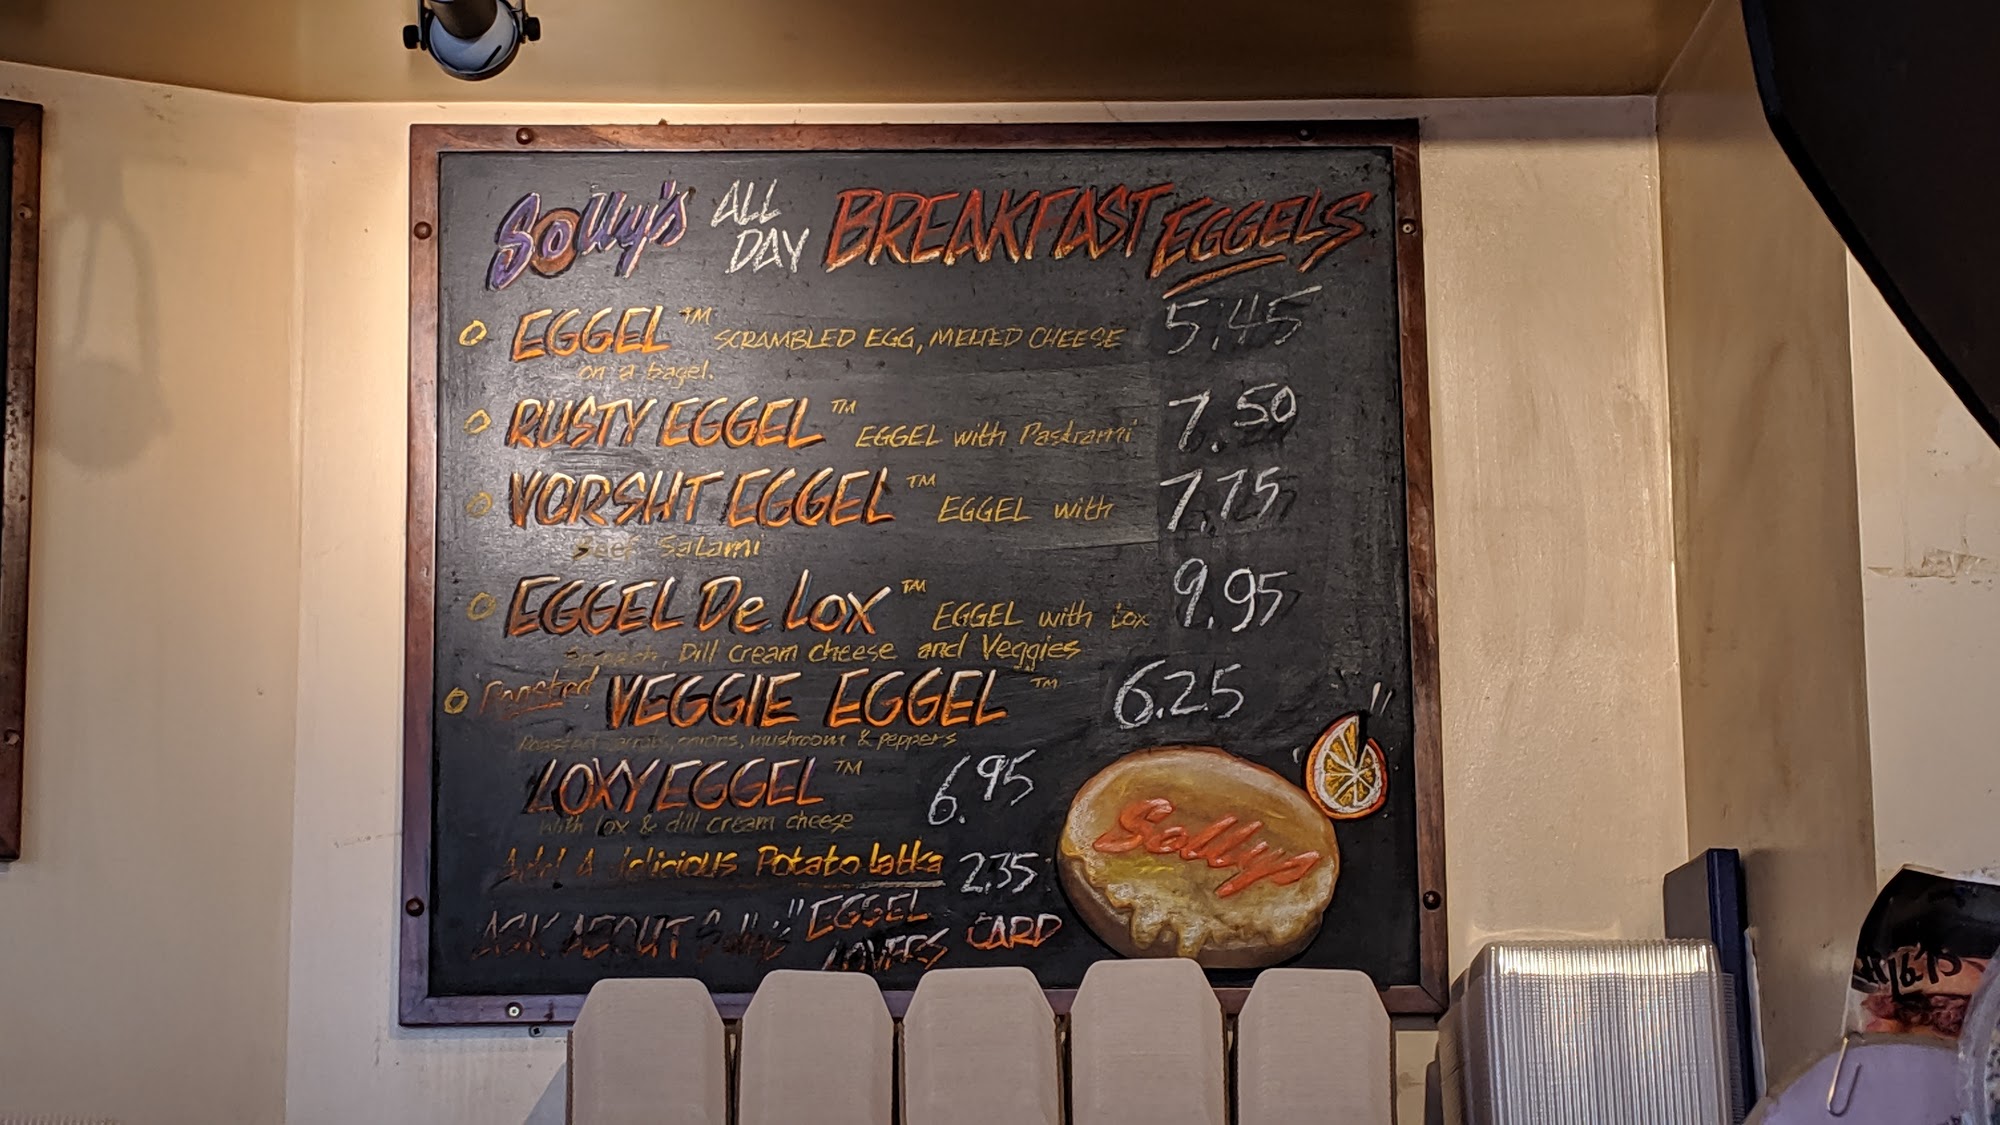 Solly's ALL DAY BREAKFAST EGGELS
EGGEL™ SCRAMBLED EGG, MELTED CHEESE 5.45
on a bagel.
RUSTY EGGEL™ EGGEL with Pastrami 7.50
VORSHT EGGEL™ EGGEL with 7.75
Beef Salami
EGGEL De Lox™ EGGEL with Lox 9.95
Spinach, Dill cream cheese and Veggies
Roasted VEGGIE EGGEL™ 6.25
Roasted carrots, onions, mushroom & peppers
LOXY EGGEL™ 6.95
with lox & dill cream cheese
Add A delicious Potato latka 2.35
ASK ABOUT Solly's "EGGEL LOVERS CARD
Solly's
16.75